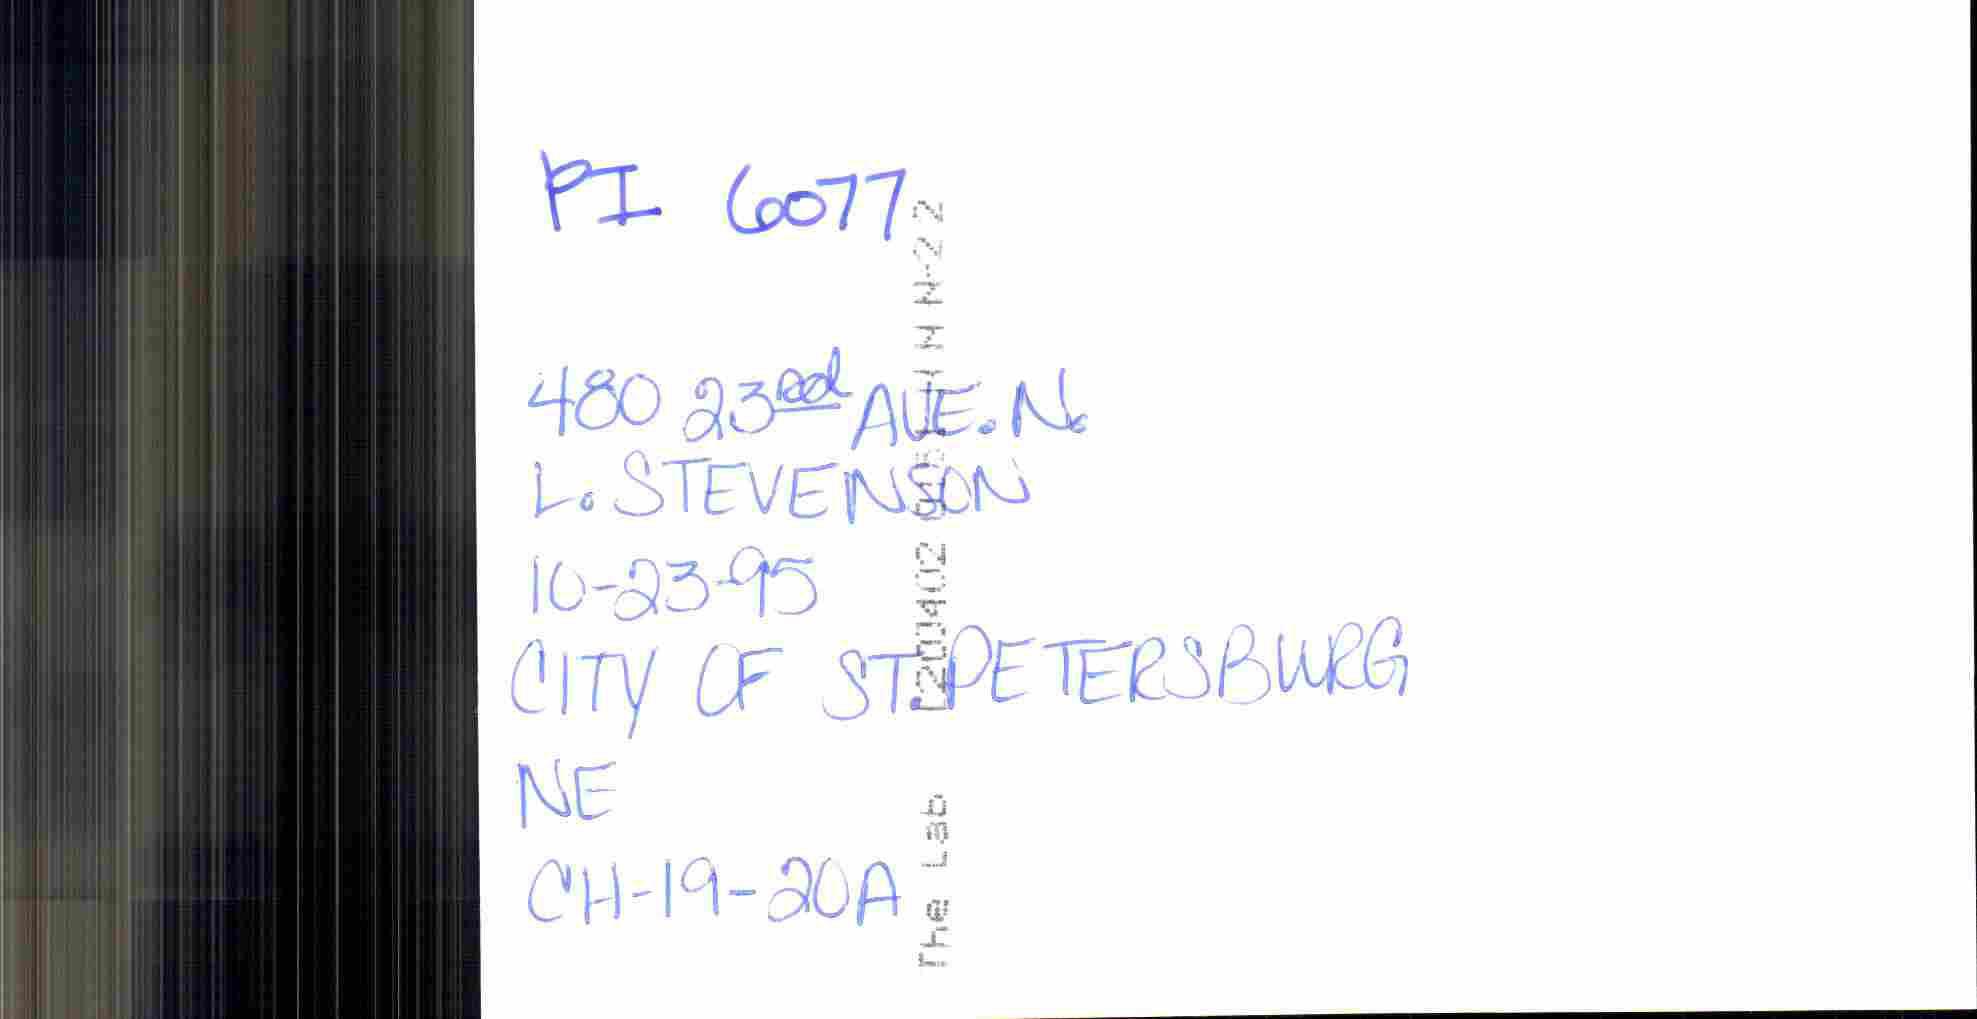 PI 6077
480 23rd AVE. N.
L. STEVENSON
10-23-95
CITY OF ST. PETERSBURG
NE
CH-19-20A
The Lab.